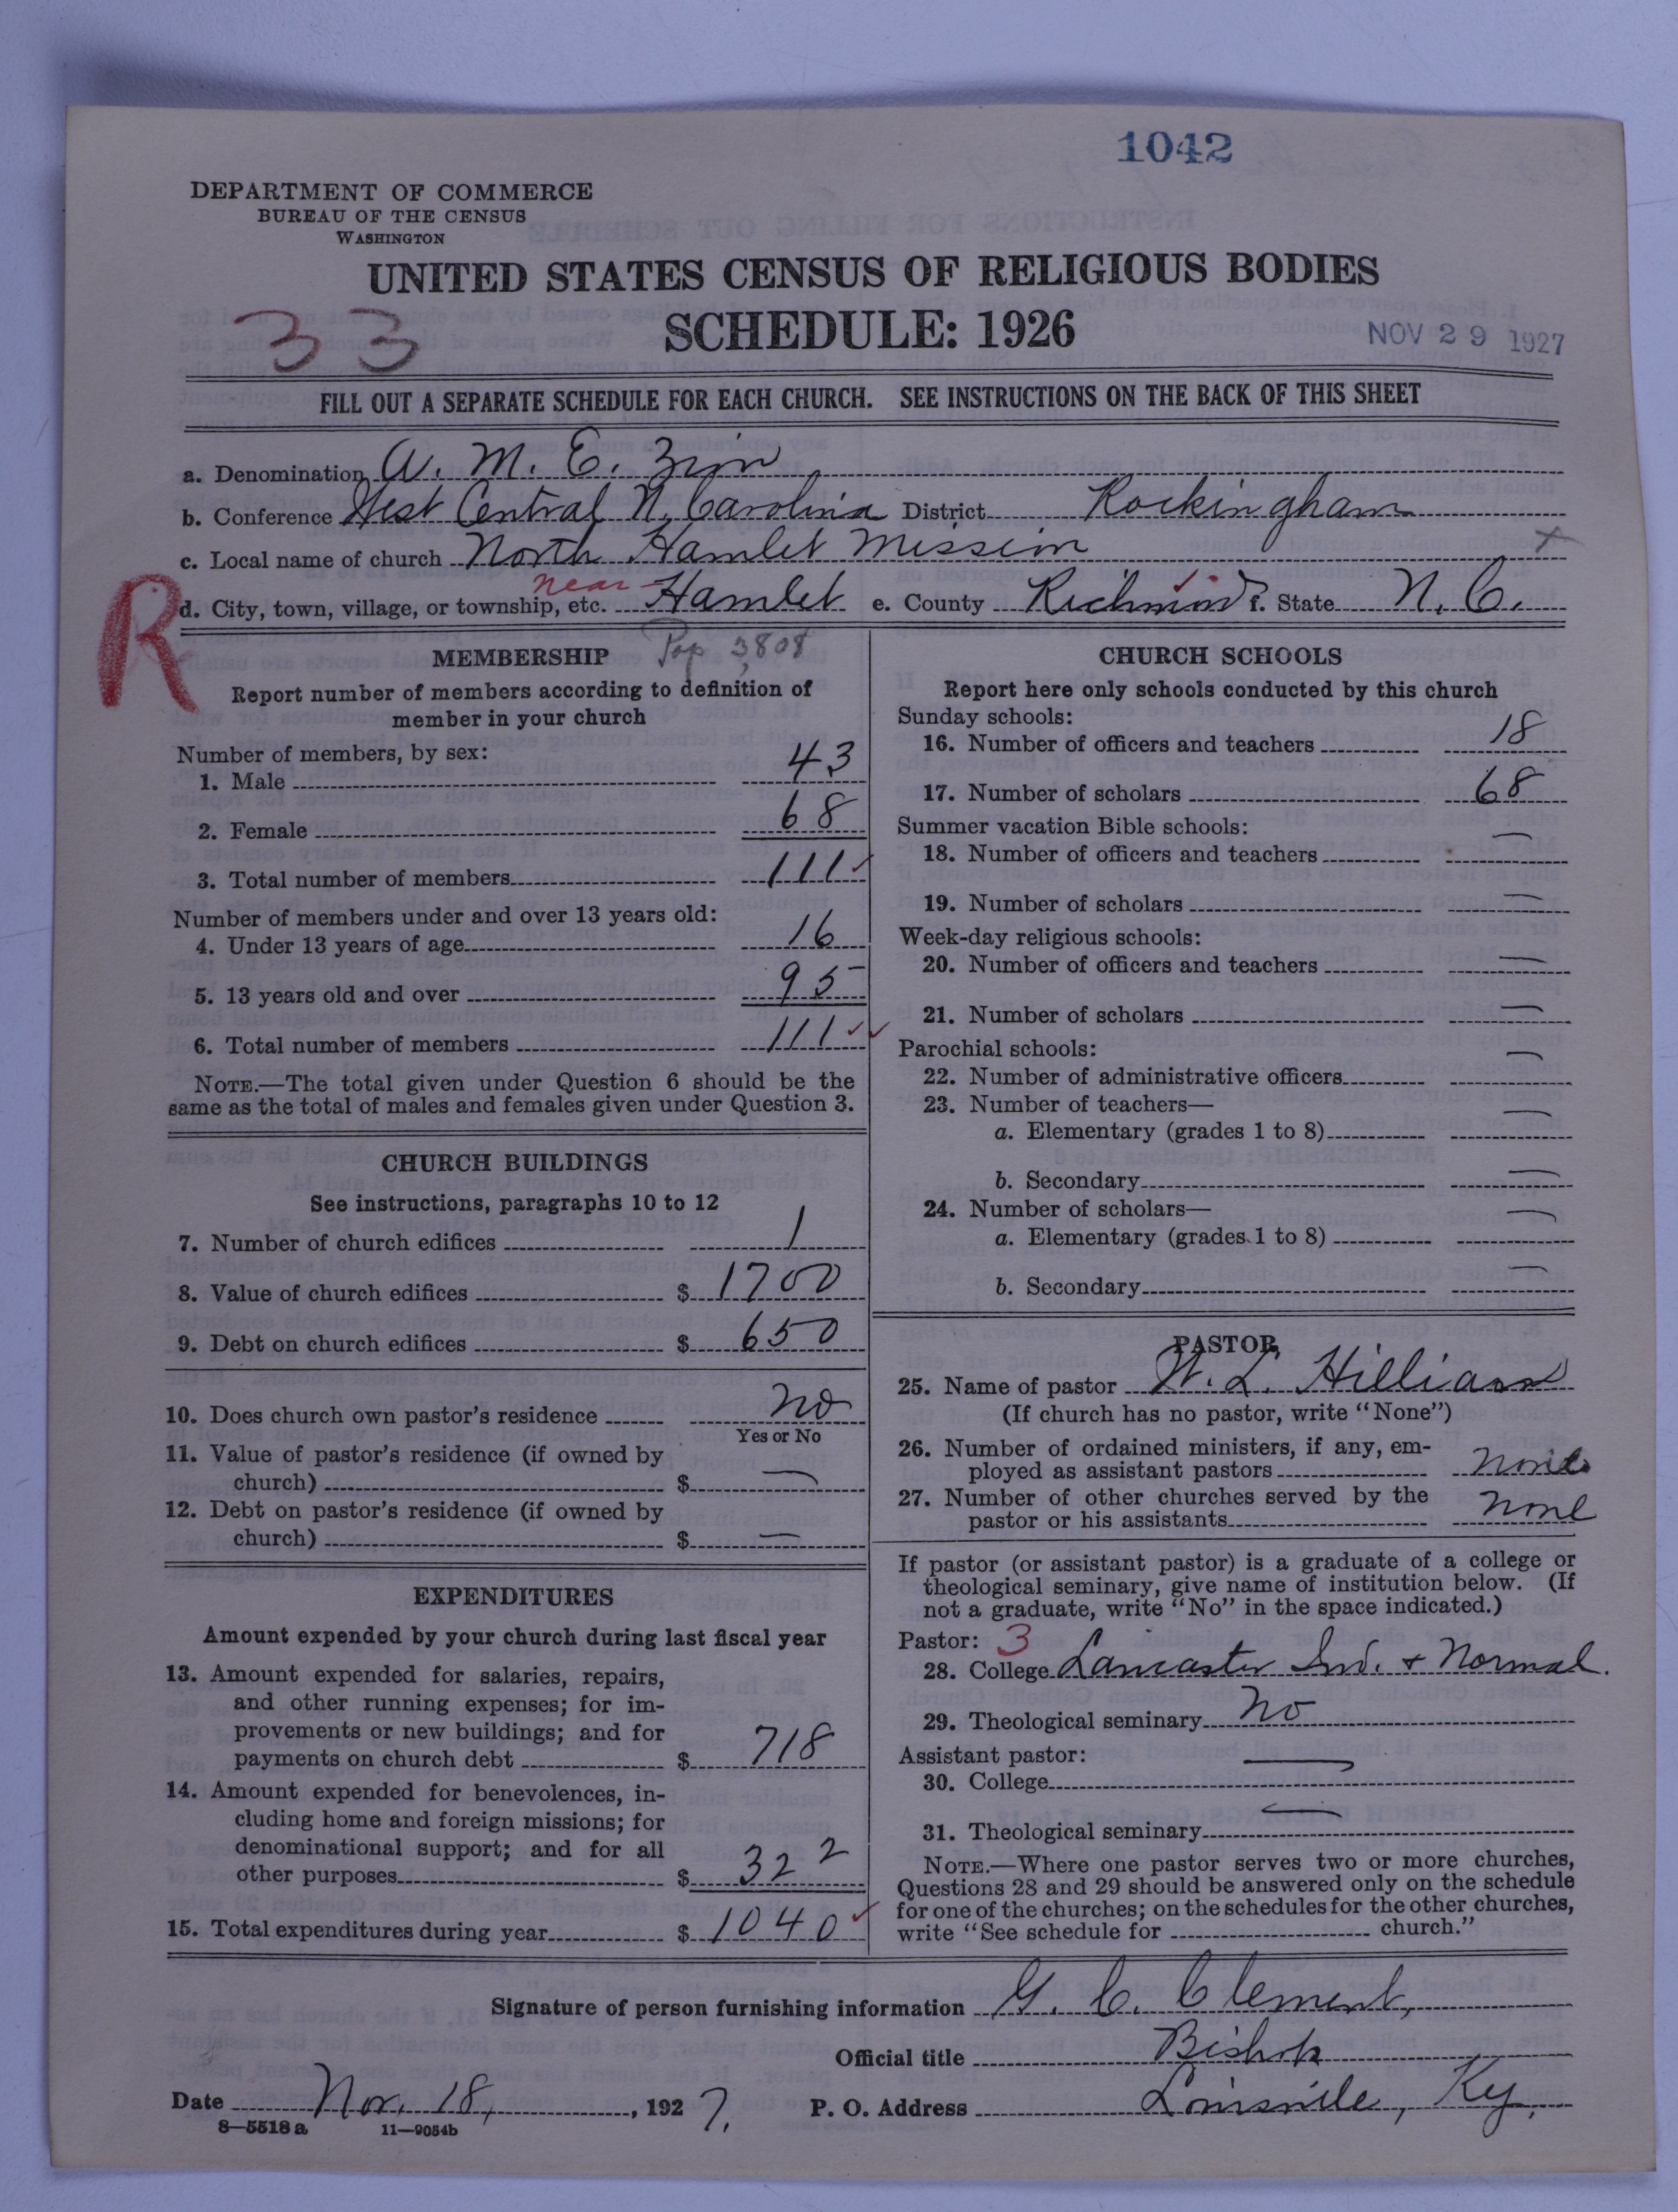 1042
DEPARTMENT OF COMMERCE
BUREAU OF THE CENSUS
WASHINGTON
UNITED STATES CENSUS OF RELIGIOUS BODIES
33
SCHEDULE: 1926
NOV 29 1927
FILL OUT A SEPARATE SCHEDULE FOR EACH CHURCH. SEE INSTRUCTIONS ON THE BACK OF THIS SHEET
a. Denomination A. M. E. Zion
b. Conference West Central N. Carolina District Rockingham
c. Local name of church North Hamlet Mission x
R
d. City, town, village, or township, etc. near Hamlet e. County Richmond f. State N. C.
MEMBERSHIP
Pop 3,808
Report number of members according to definition of
member in your church
Number of members, by sex:
1. Male 43
2. Female 68
3. Total number of members 111 ✓
Number of members under and over 13 years old:
4. Under 13 years of age 16
5. 13 years old and over 95
6. Total number of members 111 ✓✓
NOTE.—The total given under Question 6 should be the
same as the total of males and females given under Question 3.
CHURCH BUILDINGS
See instructions, paragraphs 10 to 12
7. Number of church edifices 1
8. Value of church edifices $ 1700
9. Debt on church edifices $ 650
10. Does church own pastor's residence No
Yes or No
11. Value of pastor's residence (if owned by
church) $ —
12. Debt on pastor's residence (if owned by
church) $ —
EXPENDITURES
Amount expended by your church during last fiscal year
13. Amount expended for salaries, repairs,
and other running expenses; for im-
provements or new buildings; and for
payments on church debt $ 718
14. Amount expended for benevolences, in-
cluding home and foreign missions; for
denominational support; and for all
other purposes $ 322
15. Total expenditures during year $ 1040 ✓
CHURCH SCHOOLS
Report here only schools conducted by this church
Sunday schools:
16. Number of officers and teachers 18
17. Number of scholars 68
Summer vacation Bible schools:
18. Number of officers and teachers —
19. Number of scholars —
Week-day religious schools:
20. Number of officers and teachers —
21. Number of scholars —
Parochial schools:
22. Number of administrative officers —
23. Number of teachers—
a. Elementary (grades 1 to 8) —
b. Secondary —
24. Number of scholars—
a. Elementary (grades 1 to 8) —
b. Secondary —
PASTOR
25. Name of pastor W. L. Hilliard
(If church has no pastor, write "None")
26. Number of ordained ministers, if any, em-
ployed as assistant pastors None
27. Number of other churches served by the
pastor or his assistants None
If pastor (or assistant pastor) is a graduate of a college or
theological seminary, give name of institution below. (If
not a graduate, write "No" in the space indicated.)
Pastor: 3
28. College Lancaster Ind. + Normal.
29. Theological seminary No
Assistant pastor:
30. College —
31. Theological seminary —
NOTE.—Where one pastor serves two or more churches,
Questions 28 and 29 should be answered only on the schedule
for one of the churches; on the schedules for the other churches,
write "See schedule for church."
Signature of person furnishing information G. C. Clement,
Official title Bishop
Date Nov. 18, 1927. P. O. Address Louisville, Ky.
8—5518 a 11—9054b